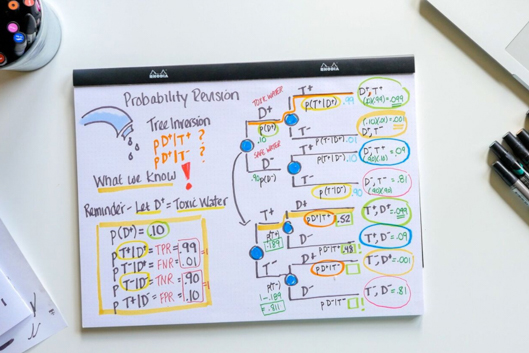 RHODIA
RHODIA
Probability Revision
Tree Inversion
p D⁺|T⁺ ?
p D⁺|T⁻ ?
What we Know !
Reminder - Let D⁺ = Toxic Water
p(D⁺) = .10
p T⁺|D⁺ = TPR = .99
p T⁻|D⁺ = FNR = .01
p T⁻|D⁻ = TNR = .90
p T⁺|D⁻ = FPR = .10
TOXIC WATER
D⁺
p(D⁺)
.10
SAFE WATER
D⁻
.90 p(D⁻)
T⁺
p(T⁺|D⁺) .99
T⁻
p(T⁻|D⁺) .01
T⁺
p(T⁺|D⁻) .10
T⁻
p(T⁻|D⁻) .90
D⁺, T⁺
(.10)(.99) = .099
(.10)(.01) = .001
D⁺, T⁻
D⁻, T⁺ = .09
D⁻, T⁻ = .81
T⁺
p(T⁺)
.189
T⁻
p(T⁻)
1-.189
= .811
D⁺
p D⁺|T⁺ .52
D⁻
.48
D⁺
p D⁺|T⁻
D⁻
p D⁻|T⁻
T⁺, D⁺ = .099
T⁺, D⁻ = .09
T⁻, D⁺ = .001
T⁻, D⁻ = .81